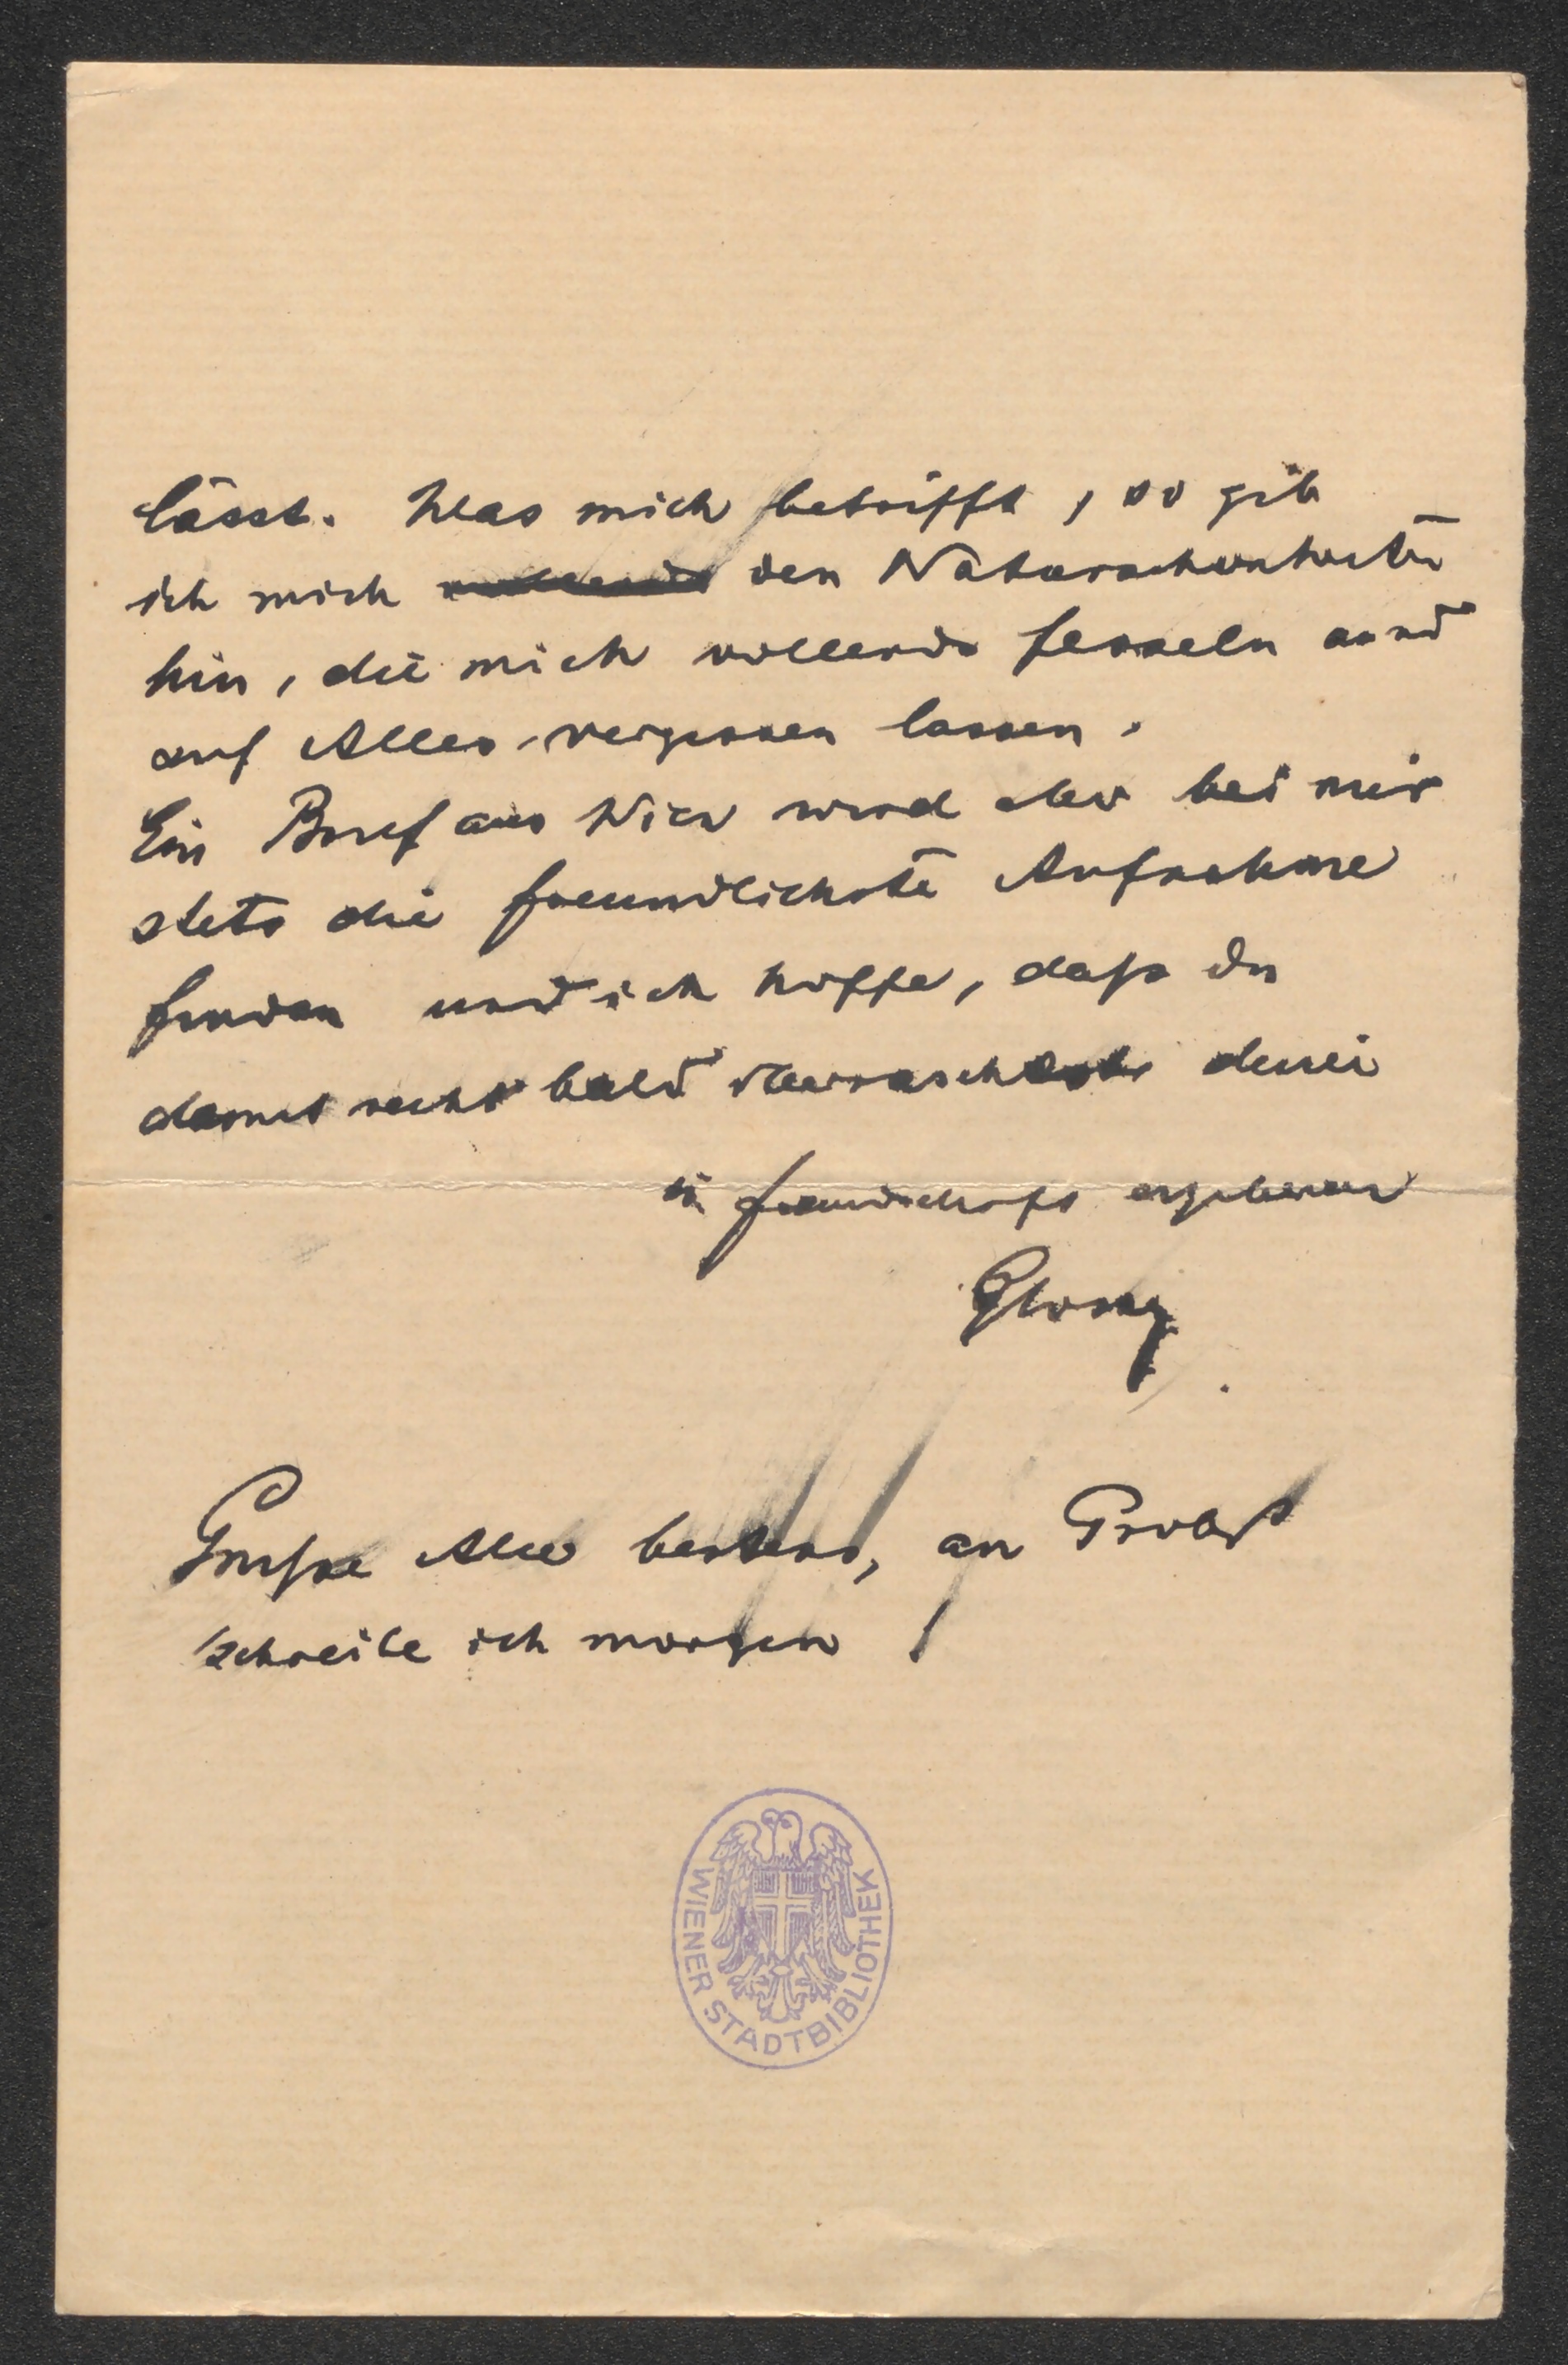 lässt. Was mich betrifft, so gib
ich mich den Naturschönheiten
hin, die mich vollends fesseln und
auf Alles vergessen lassen.
Ein Brief aus Wien wird aber bei mir
stets die freundlichste Aufnahme
finden und ich hoffe, daß du
damit recht bald überraschest deinen
in Freundschaft ergebenen
Grüße Alle bestens, an Probst
schreibe ich morgen!
WIENER STADTBIBLIOTHEK